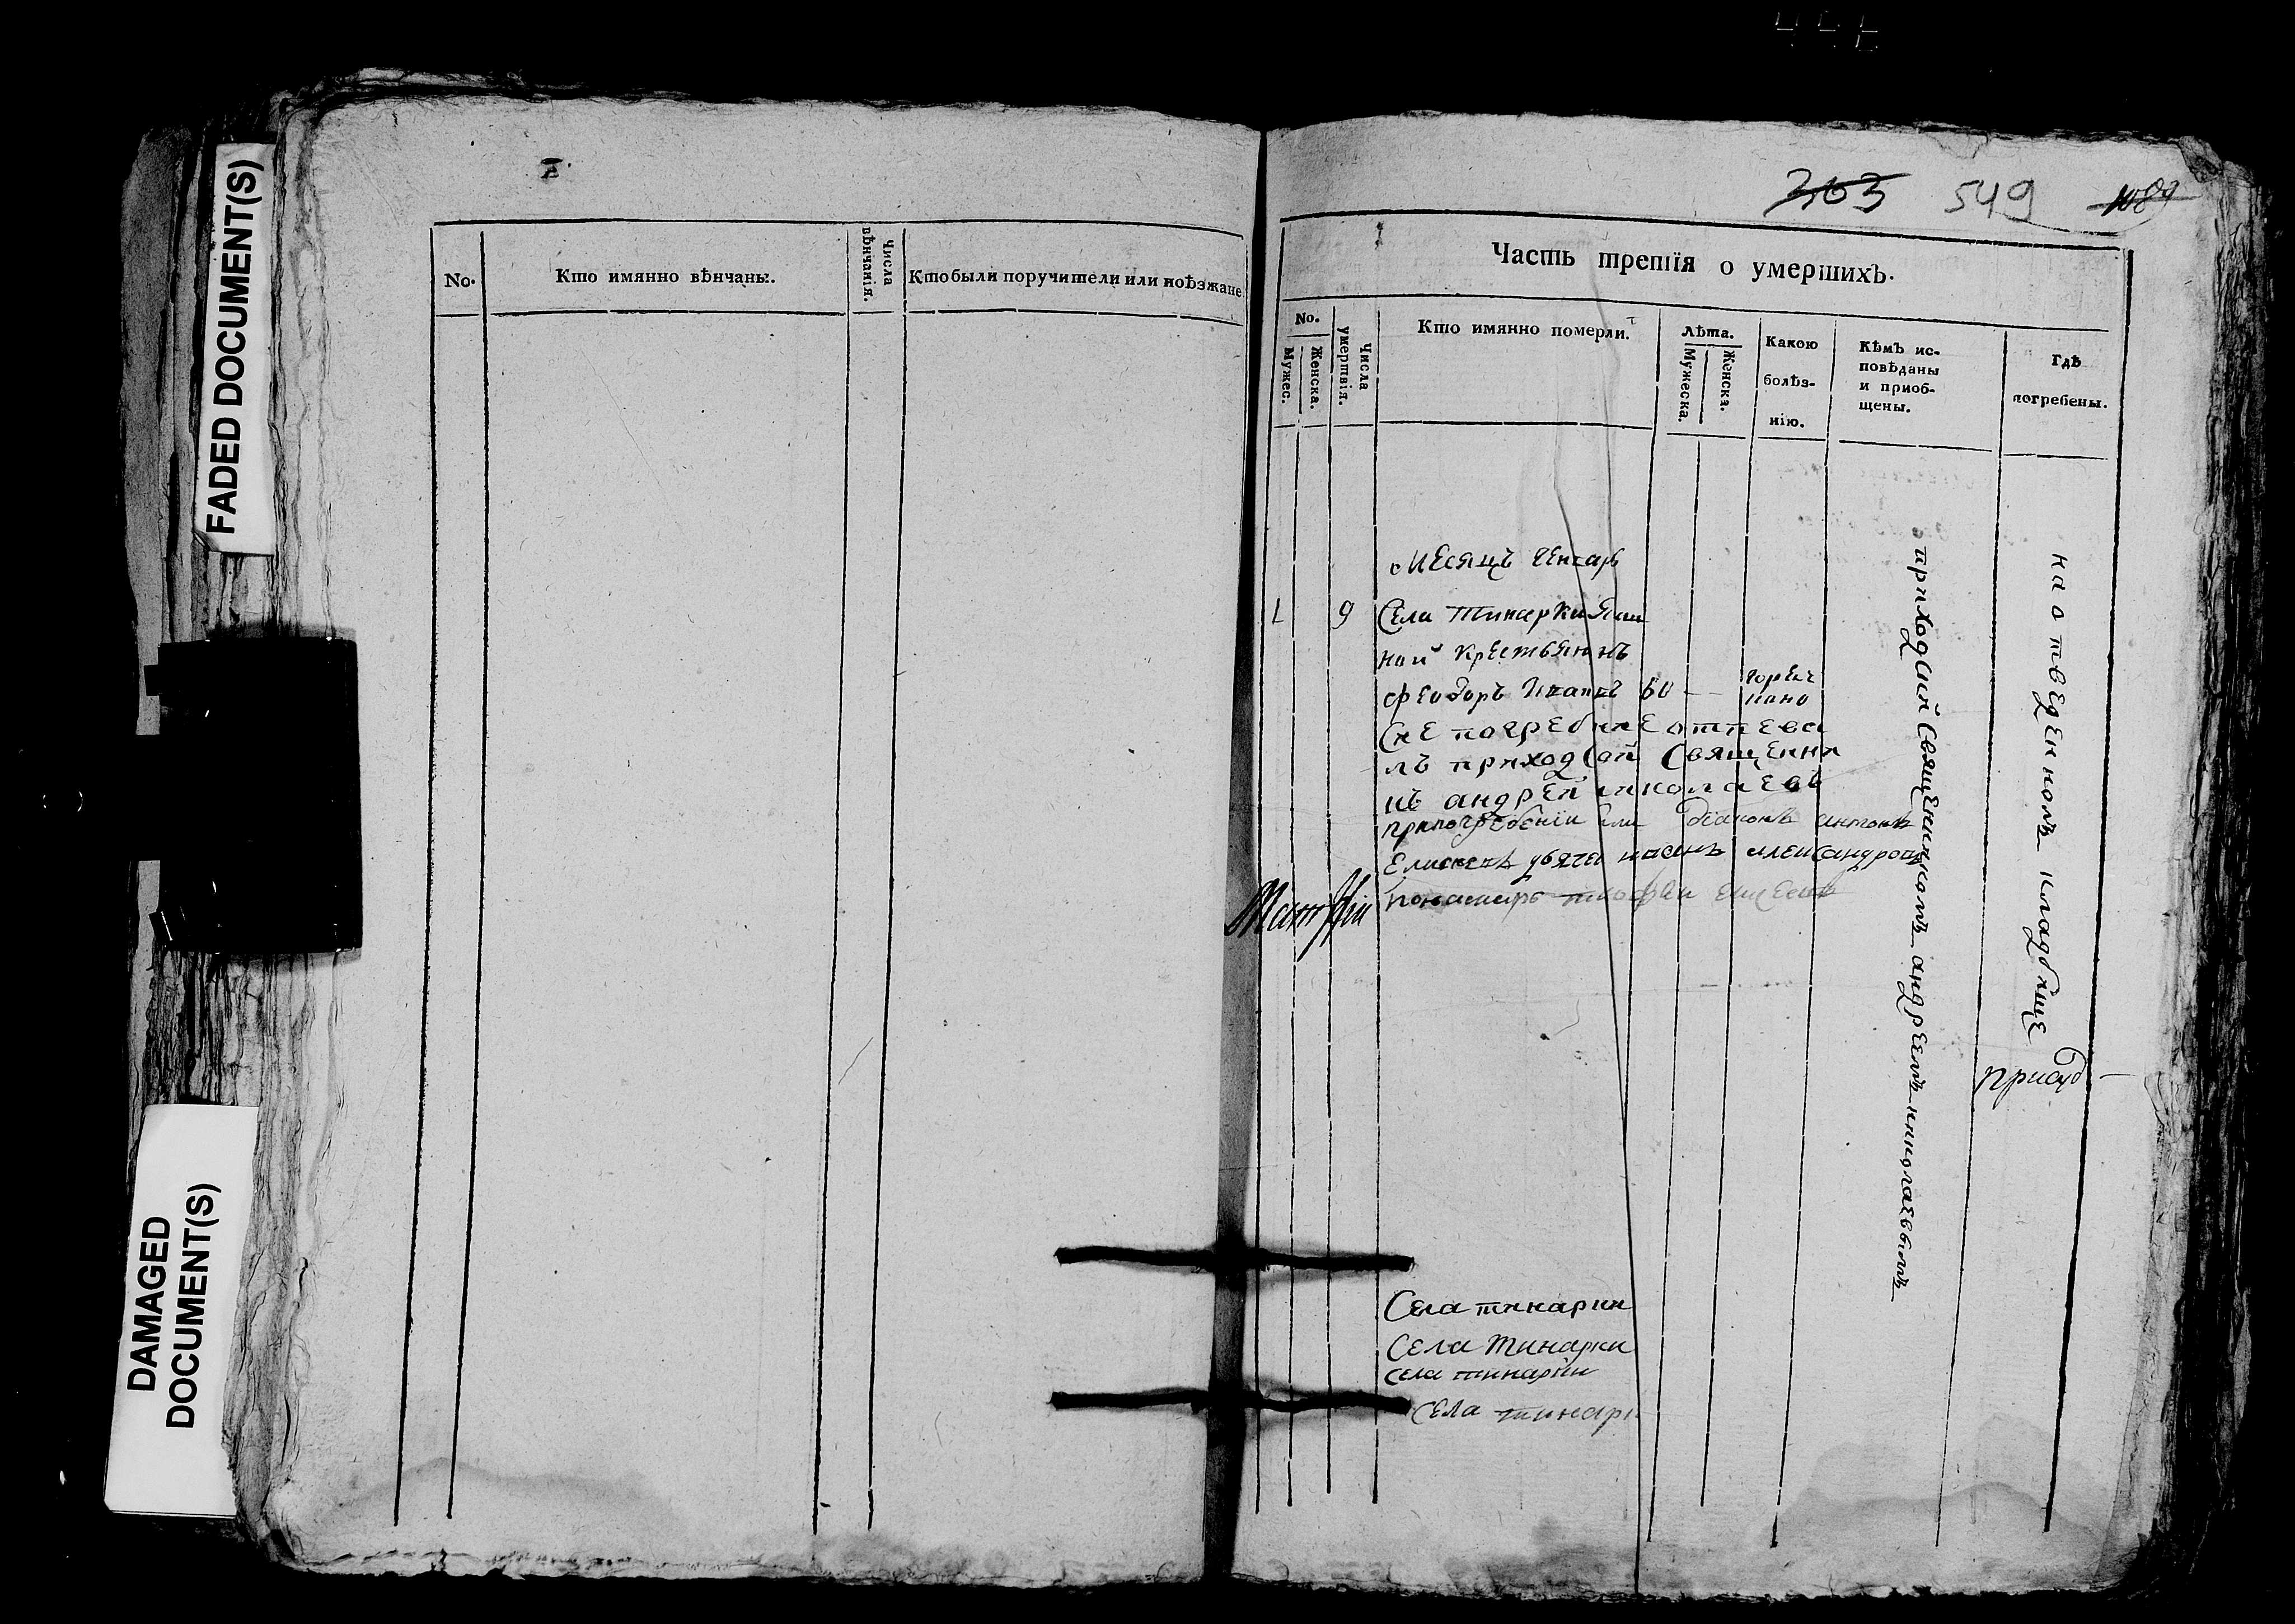 FADED DOCUMENT(S)
DAMAGED
DOCUMENT(S)
No.
Кто имянно вѣнчаны.
Числа
вѣнчанія.
Кто были поручители или поѣзжане.
303 549 1089
Часть третія о умершихъ.
No.
Мужес.
Женска.
Числа
умертвія.
Кто имянно померли.
Лѣта.
Мужеска.
Женска.
Какою
болѣз-
нію.
Кѣмъ ис-
повѣданы
и приоб-
щены.
Гдѣ
погребены.
Месяцъ Генварь
1 9 Села Тинарки
ной крестьянинъ
феодоръ 60 — горяч
кано
Сие погребение отпева
лъ приходской Священни
къ андрей николаевъ
при погребении были диаконъ антонъ
александровъ
понамарь
приходским Священником андреем николаевым
на отведенном кладбище
Села тинарки
Села Тинарки
села тинарки
села тинарк